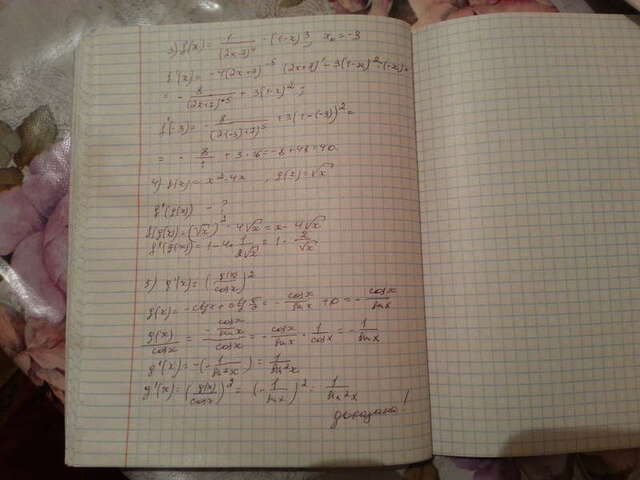 3) f(x) = 1/(2x+7)^4 - (1-x)^3, x₀ = -3
f'(x) = -4(2x+7)^-5 (2x+7)' - 3(1-x)^2 · (-x)' =
= - 8/(2x+7)^5 + 3(1-x)^2;
f'(-3) = - 8/(2(-3)+7)^5 + 3(1-(-3))^2 =
= - 8/1 + 3·16 = -8+48=40.
4) f(x) = x²-4x, g(x)=√x
f'(g(x)) - ?
f(g(x)) = (√x)² - 4√x = x - 4√x
f'(g(x)) = 1 - 4· 1/2√x = 1 - 2/√x
5) g'(x) = (g(x)/cosx)^2
g(x) = -ctgx + ctg π/2 = - cosx/sinx + 0 = - cosx/sinx
g(x)/cosx = (- cosx/sinx)/cosx = - cosx/sinx · 1/cosx = - 1/sinx
g'(x) = -(- 1/sin²x) = 1/sin²x
g'(x) = (g(x)/cosx)^2 = (- 1/sinx)^2 = 1/sin²x
доказано!